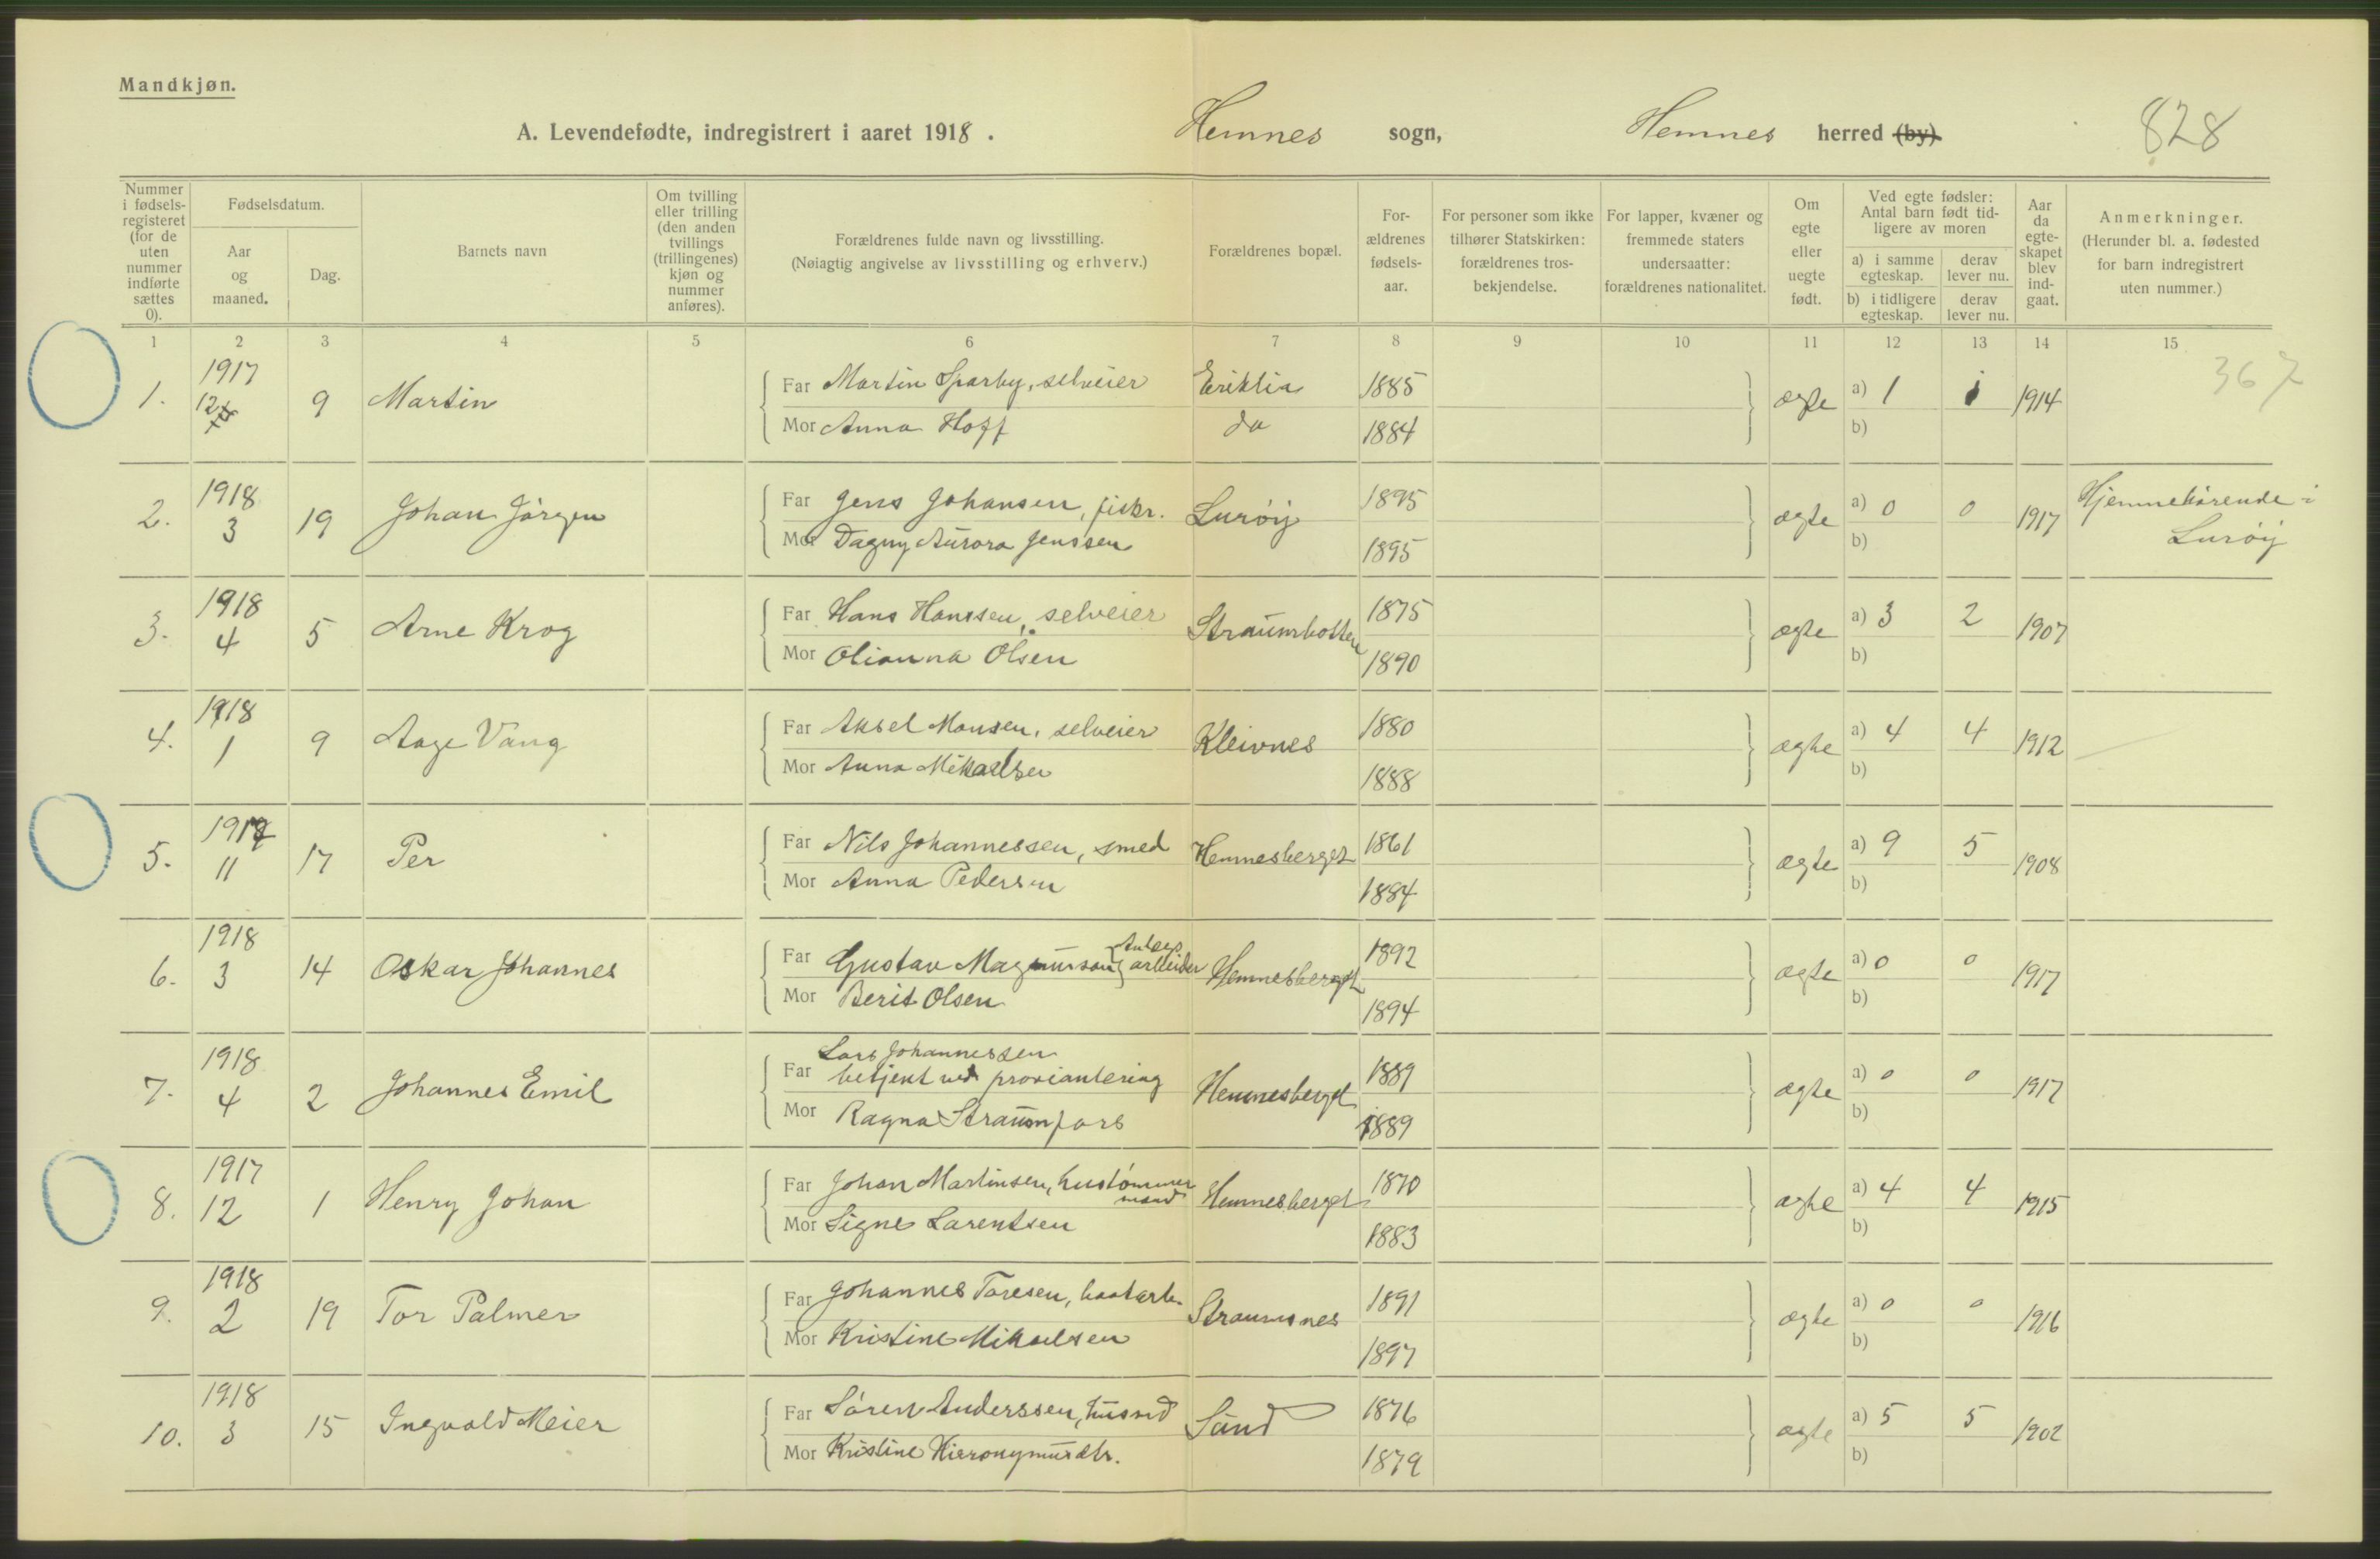 Mandkjøn.
A. Levendefødte, indregistrert i aaret 1918. Hemnes sogn, Hemnes herred (by). 828
Nummer i fødsels-registeret (for de uten nummer indførte sættes 0).
Fødselsdatum.
Aar og maaned.
Dag.
Barnets navn
Om tvilling eller trilling (den anden tvillings (trillingenes) kjøn og nummer anføres).
Forældrenes fulde navn og livsstilling.
(Nøiagtig angivelse av livsstilling og erhverv.)
Forældrenes bopæl.
For-ældrenes fødsels-aar.
For personer som ikke tilhører Statskirken: forældrenes tros-bekjendelse.
For lapper, kvæner og fremmede staters undersaatter: forældrenes nationalitet.
Om egte eller uegte født.
Ved egte fødsler: Antal barn født tid-ligere av moren
a) i samme egteskap.
derav lever nu.
b) i tidligere egteskap.
derav lever nu.
Aar da egte-skapet blev ind-gaat.
Anmerkninger.
(Herunder bl. a. fødested for barn indregistrert uten nummer.)
1 2 3 4 5 6 7 8 9 10 11 12 13 14 15
367
1917
1. 12 9 Martin Far Martin Sparby, selveier Eriklia 1885 ægte a) 1 1 1914
Mor Anna Hoff do 1884 b)
1918
2. 3 19 Johan Jörgen Far Jens Johansen, fiskr. Lurøy 1895 ægte a) 0 0 1917 Hjemmehørende i
Mor Dagny Aurora Jenssen 1895 b) Lurøy
1918
3. 4 5 Arne Krog Far Hans Hanssen, selveier Straumbotten 1875 ægte a) 3 2 1907
Mor Olianna Olsen 1890 b)
1918
4. 1 9 Aage Vang Far Aksel Monsen, selveier Kleivnes 1880 ægte a) 4 4 1912
Mor Anna Mikaelsen 1888 b)
1917
5. 11 17 Per Far Nils Johannessen, smed Hemnesberget 1861 ægte a) 9 5 1908
Mor Anna Pedersen 1884 b)
1918
6. 3 14 Oskar Johannes Far Gustav Magnusson, Anlegs arbeider Hemnesberget 1892 ægte a) 0 0 1917
Mor Berit Olsen 1894 b)
1918 Lars Johannessen
7. 4 2 Johannes Emil Far betjent ved proviantering Hemnesberget 1889 ægte a) 0 0 1917
Mor Ragna Straumfors 1889 b)
1917
8. 12 1 Henry Johan Far Johan Martinsen, hustömmermand Hemnesberget 1870 ægte a) 4 4 1915
Mor Signe Larentsen 1883 b)
1918
9. 2 19 Tor Palmer Far Johannes Toresen, baatarb. Straumsnes 1891 ægte a) 0 0 1916
Mor Kristine Mikaelsen 1897 b)
1918
10. 3 15 Ingvald Meier Far Sören Anderssen, husmd Sund 1876 ægte a) 5 5 1902
Mor Kristine Hieronymusdtr. 1879 b)